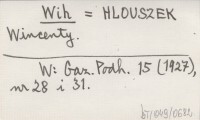 Wih = HLOUSZEK
Wincenty.
W: Gaz. Podh. 15 (1927),
nr 28 i 31.